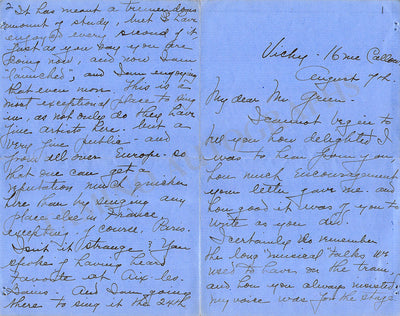 1
Vichy - 16 rue Callou
August 7th.
My dear Mr. Green.
I cannot begin to
tell you how delighted I
was to hear from you,
how much encouragement
your letter gave me - and
how good it was of you to
write as you did.
I certainly do remember
the long musical talks we
used to have on the train,
and how you always insisted
my voice was for the stage.
2 It has meant a tremendous
amount of study, but I have
enjoyed every second of it
just as you say you are
doing now, and now I am
"launched", and I am enjoying
that even more. This is a
most exceptional place to sing
in, as not only do they have
fine artists here - but a
very fine public - and
from all over Europe - so
that one can get a
reputation much quicker
here than by singing any
place else in France,
excepting of course, Paris.
Isn't it strange? You
spoke of having heard
Favorite at Aix-les-
Bains - and I am going
there to sing it the 24th